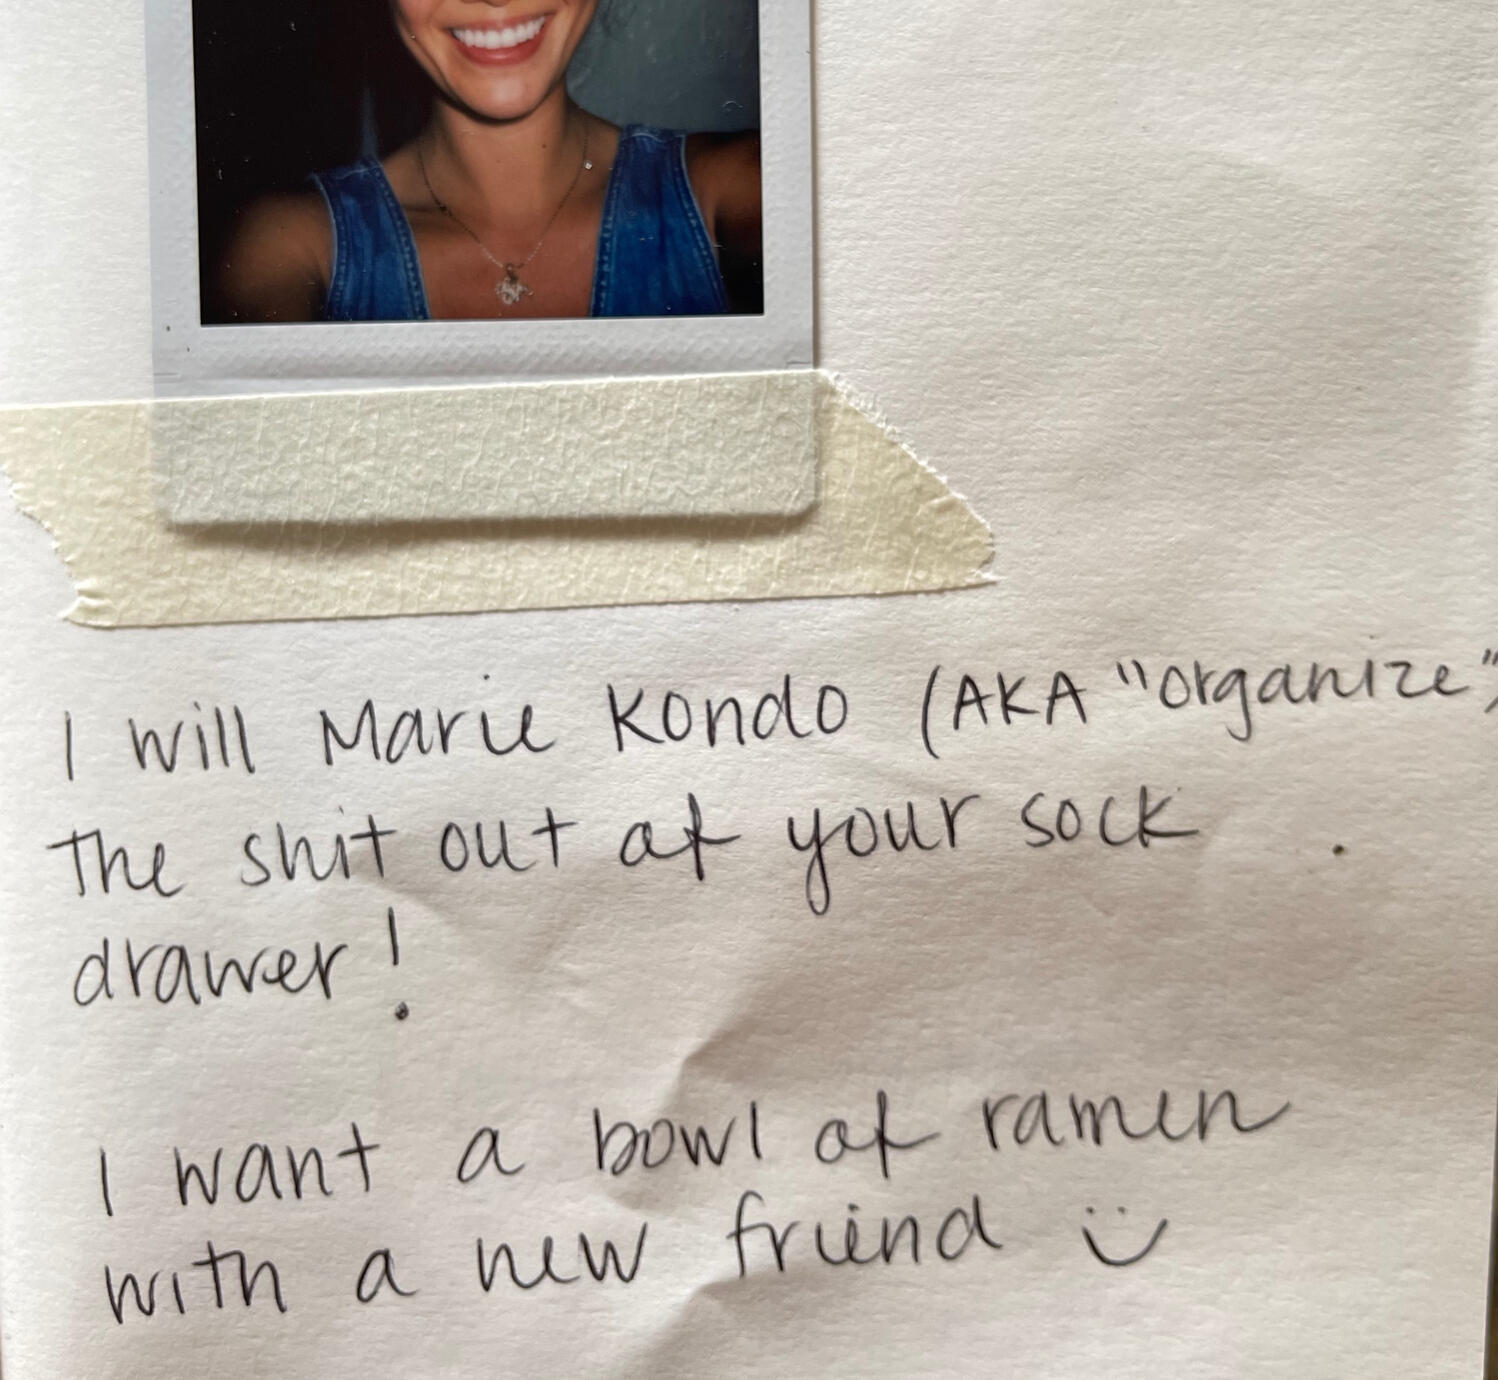 I will Marie Kondo (AKA "organize")
the shit out of your sock
drawer!
I want a bowl of ramen
with a new friend :)